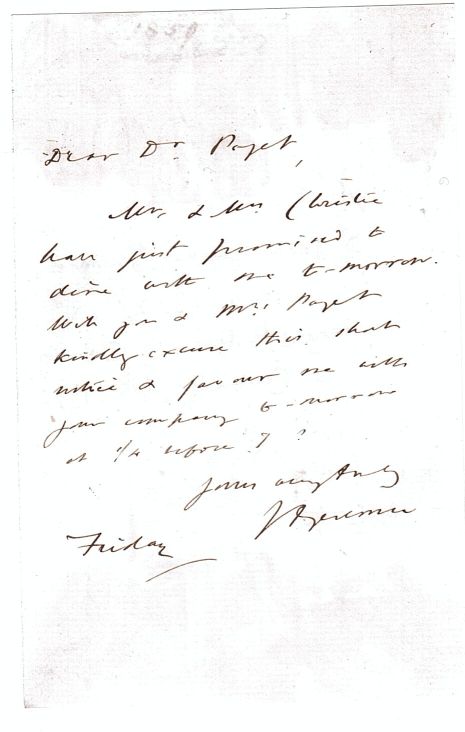 1859
Dear Dr Paget,
Mr. & Mrs Christie
have just promised to
dine with me to-morrow.
Will you & Mrs. Paget
kindly excuse this short
notice & favour me with
your company to-morrow
at 1/4 before 7?
Yours very truly
Friday